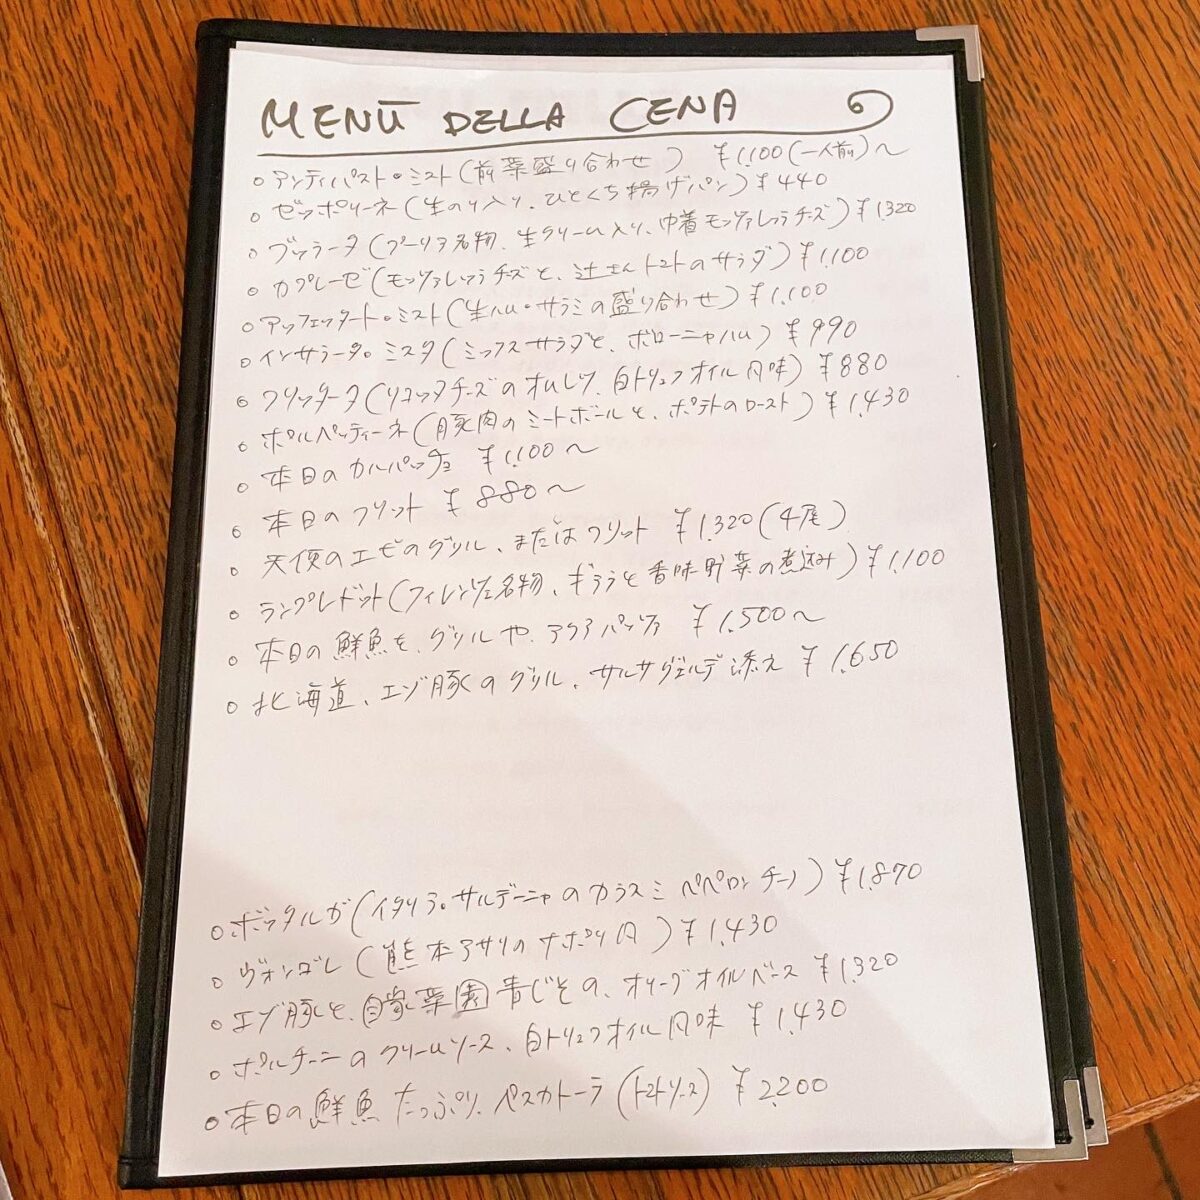 MENŪ DELLA CENA
○ アンティパスト・ミスト(前菜盛り合わせ) ¥1,100(一人前)〜
○ ゼッポリーネ(生のり入り、ひとくち揚げパン)¥440
○ ブッラータ(プーリア名物、生クリーム入り、巾着モッツァレッラチーズ)¥1320
○ カプレーゼ(モッツァレッラチーズと、辻さんトマトのサラダ)¥1,100
○ アッフェッタート・ミスト(生ハム・サラミの盛り合わせ)¥1,100
○ インサラータ・ミスタ(ミックスサラダと、ボローニャハム)¥990
○ フリッタータ(リコッタチーズのオムレツ、白トリュフオイル風味)¥880
○ ポルペッティーネ(豚肉のミートボールと、ポテトのロースト)¥1,430
○ 本日のカルパッチョ ¥1,100〜
○ 本日のフリット ¥880〜
○ 天使のエビのグリル、またはフリット ¥1,320(4尾)
○ ランプレドット(フィレンツェ名物、ギアラと香味野菜の煮込み)¥1,100
○ 本日の鮮魚を、グリルや、アクアパッツァ ¥1,500〜
○ 北海道、エゾ豚のグリル、サルサヴェルデ添え ¥1,650
○ ボッタルガ(イタリア・サルデーニャのカラスミ ペペロンチーノ)¥1,870
○ ヴォンゴレ(熊本アサリのナポリ風)¥1,430
○ エゾ豚と、自家菜園青じその、オリーブオイルベース ¥1,320
○ ポルチーニのクリームソース、白トリュフオイル風味 ¥1,430
○ 本日の鮮魚たっぷり、ペスカトーラ(トマトソース) ¥2,200